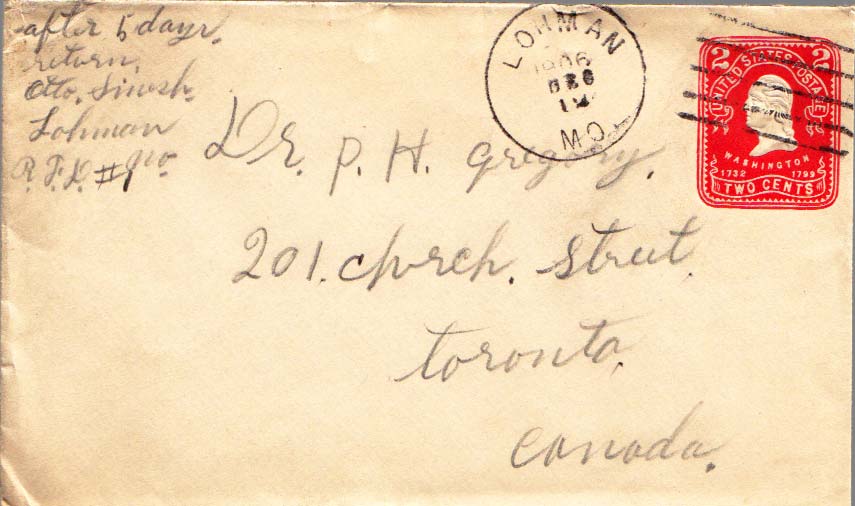 after 5 days.
return.
Otto.
Lohman
R. F. D. #1 Mo.
LOHMAN
1906
DEC
MO.
2 2
UNITED STATES POSTAGE
WASHINGTON
1732 1799
TWO CENTS
Dr. P. H. Gregory.
201. Chvrch. Street
Toronto.
Canada.